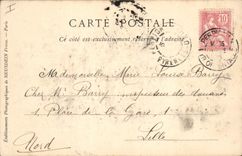 CARTE POSTALE
Ce côté est exclusivement réservé à l'adresse
Mademoiselle Marie Louise Barry
Chez Mr Barry, inspecteur des douanes
1 Place de la Gare
Lille
Nord
Établissements Photographiques de NEURDEIN Frères. — Paris
10